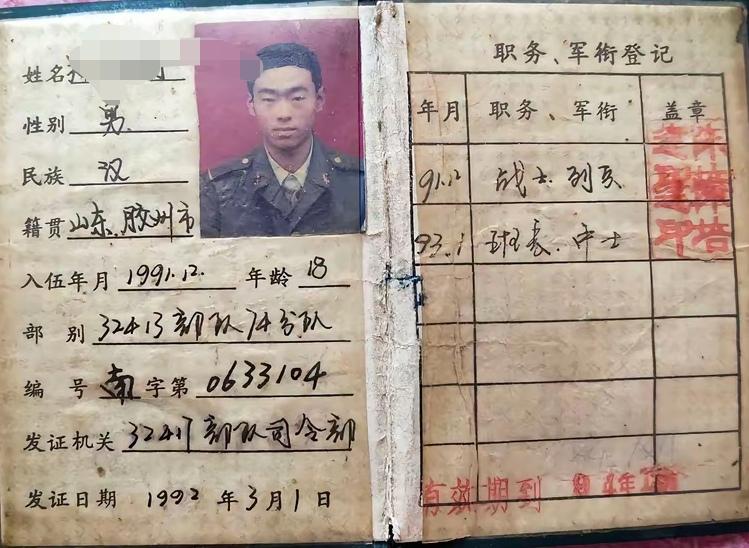 姓名
性别 男
民族 汉
籍贯 山东胶州市
入伍年月 1991.12. 年龄 18
部别 32413部队74分队
编号 南字第 0633104
发证机关 32417部队司令部
发证日期 1992年3月1日
职务、军衔登记
年月 职务、军衔 盖章
91.12 战士.列兵
93.1 班长.中士
有效期到